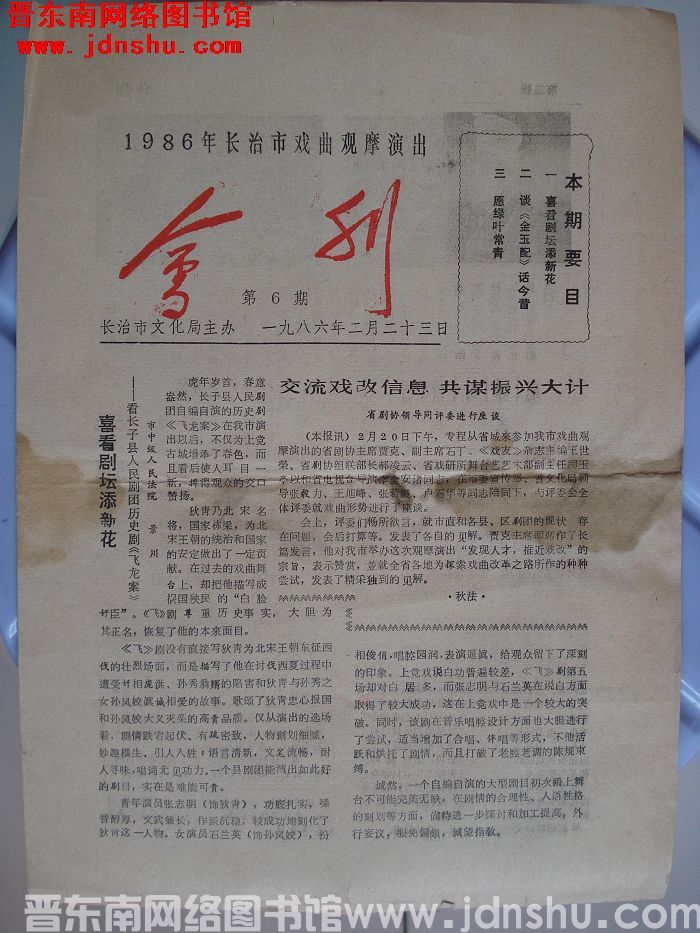 晋东南网络图书馆
www.jdnshu.com
1986年长治市戏曲观摩演出
会刊
第6期
长治市文化局主办 一九八六年二月二十三日
本期要目
一 喜看剧坛添新花
二 谈《金玉配》话今昔
三 愿绿叶常青
喜看剧坛添新花
——看长子县人民剧团历史剧《飞龙案》
市中级人民法院 景川
虎年岁首，春意
盎然，长子县人民剧
团自编自演的历史剧
《飞龙案》在我市演
出以后，不仅为上党
古城增添了春色，而
且看后使人耳目一
新，搏得观众的交口
赞扬。
狄青乃北宋名
将，国家栋梁，为北
宋王朝的统治和国家
的安定做出了一定贡
献。在过去的戏曲舞
台上，却把他描写成
祸国殃民的“白脸
奸臣”。《飞》剧尊重历史事实，大胆为
其正名，恢复了他的本来面目。
《飞》剧没有直接写狄青为北宋王朝东征西
伐的壮烈场面，而是描写了他在讨伐西夏过程中
遭受奸相庞洪、孙秀翁婿的陷害和狄青与孙秀之
女孙凤姣真诚相爱的故事。歌颂了狄青忠心报国
和孙凤姣大义灭亲的高贵品质。仅从演出的选场
看，剧情跌宕起伏、有疏密致，人物刻划细腻，
妙趣横生、引人入胜；语言清新，文笔流畅，耐
人寻味，唱词尤见功力。一个县剧团能演出如此好
的剧目，实在是难能可贵。
青年演员张志明（饰狄青），功底扎实，嗓
音醇厚，文武兼长，作派沉稳，较成功地刻化了
狄青这一人物。女演员石兰英（饰孙凤姣），扮
相俊俏，唱腔园润，表演逼真，给观众留下了深刻
的印象。上党戏说白功普遍较差，《飞》剧第五
场却对白居多，而张志明与石兰英在说白方面
取得了较大成功，这在上党戏中是一个较大的突
破。同时，该剧在音乐唱腔设计方面也大胆进行
了尝试，适当增加了合唱、伴唱等形式，不他活
跃和烘托了剧情，而且打破了老腔老调的陈规束
缚。
诚然，一个自编自演的大型剧目初次搬上舞
台不可能完美无缺，在剧情的合理性、人语性格
的刻划等方面，尚待进一步探讨和加工提高。外
行妄议，难免偏颇，诚望指教。
交流戏改信息 共谋振兴大计
省剧协领导同评委进行座谈
（本报讯）2月20日下午，专程从省城来参加我市戏曲观
摩演出的省剧协主席贾克、副主席石丁、《戏友》杂志主编
荣、省剧协组联部长郝凌云、省戏研所舞台艺术部副主任
以和省电视台导演李金安诸同志，在市委宣传部、省文化局领
导张毅力、王旭峰、张看 、卢石华等同志陪同下，与评委会全
体评委就戏曲形势进行了座谈。
会上，评委们畅所欲言，就市直和各县、区剧团的现状存
在问题，会后打算等。发表了各自的见解。贾克主席即席作了长
篇发言，他对我市举办这次观摩演出“发现人才，推近戏改”的
宗旨，表示赞赏，並就全省各地为探索戏曲改革之路所作的种种
尝试，发表了精采独到的见解。
·秋法·
晋东南网络图书馆 www.jdnshu.com